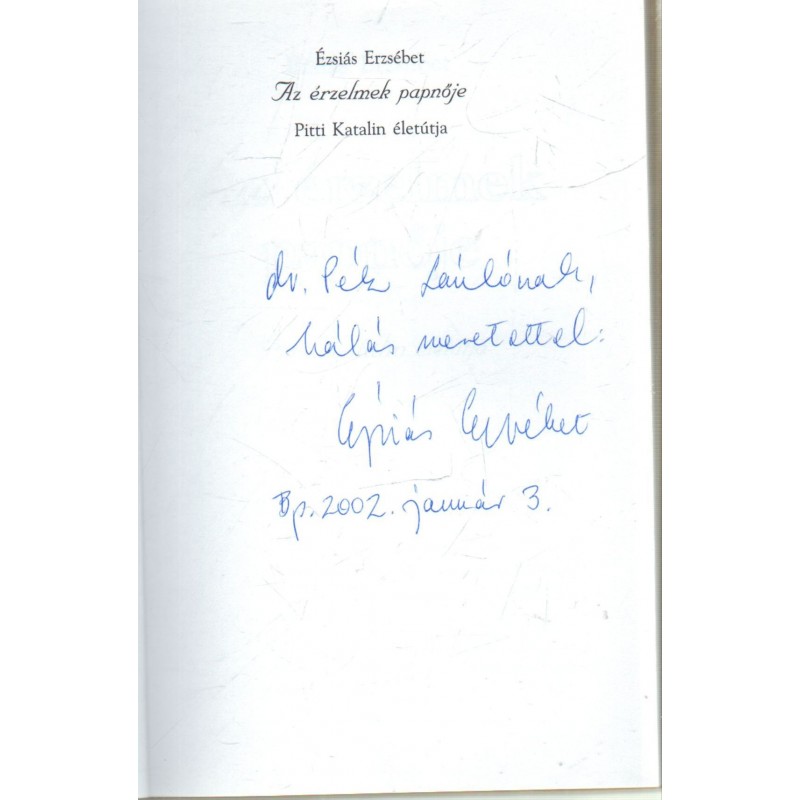 Ézsiás Erzsébet
Az érzelmek papnője
Pitti Katalin életútja
dr. Lászlónak,
hálás szeretettel:
Ézsiás Erzsébet
Bp. 2002. január 3.